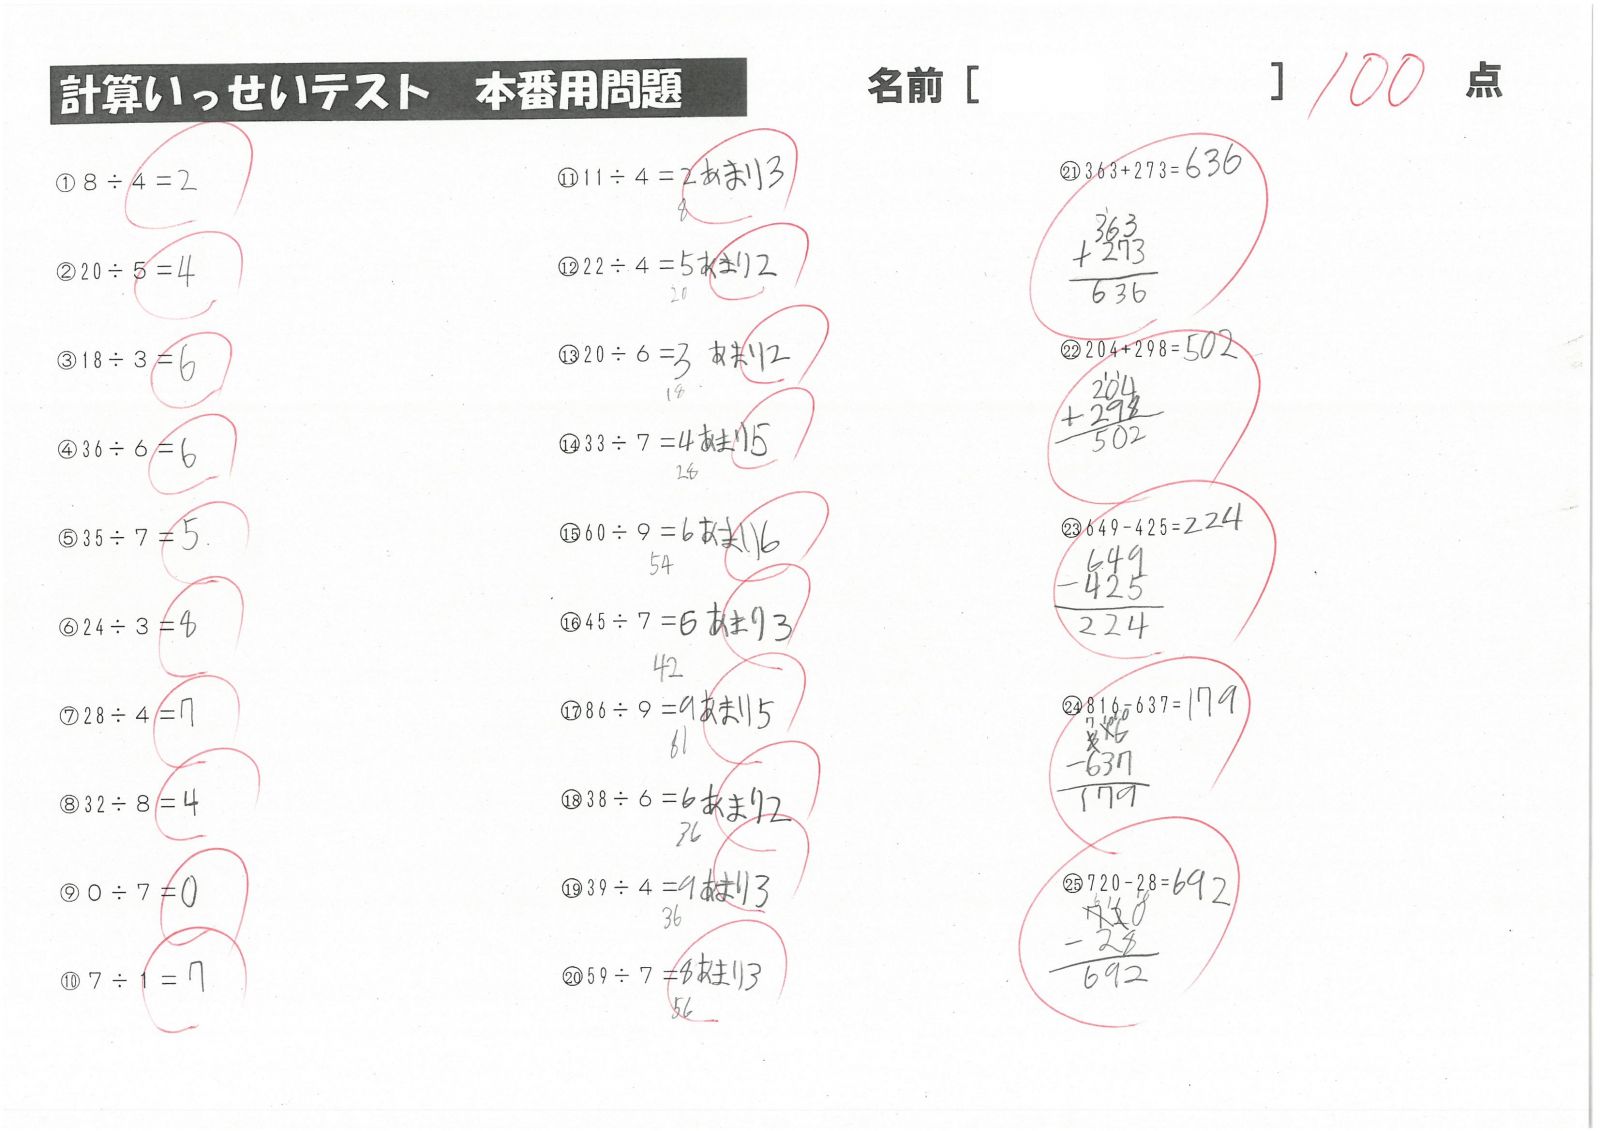 計算いっせいテスト 本番用問題
名前[ ] 100 点
①8÷4=2
②20÷5=4
③18÷3=6
④36÷6=6
⑤35÷7=5
⑥24÷3=8
⑦28÷4=7
⑧32÷8=4
⑨0÷7=0
⑩7÷1=7
⑪11÷4=2あまり3
8
⑫22÷4=5あまり2
20
⑬20÷6=3 あまり2
18
⑭33÷7=4あまり5
28
⑮60÷9=6あまり6
54
⑯45÷7=6あまり3
42
⑰86÷9=9あまり5
81
⑱38÷6=6あまり2
36
⑲39÷4=9あまり3
36
⑳59÷7=8あまり3
56
㉑363+273=636
1
363
+273
636
㉒204+298=502
11
204
+298
502
㉓649-425=224
649
-425
224
㉔816-637=179
7 10 10
816
-637
179
㉕720-28=692
720
-28
692